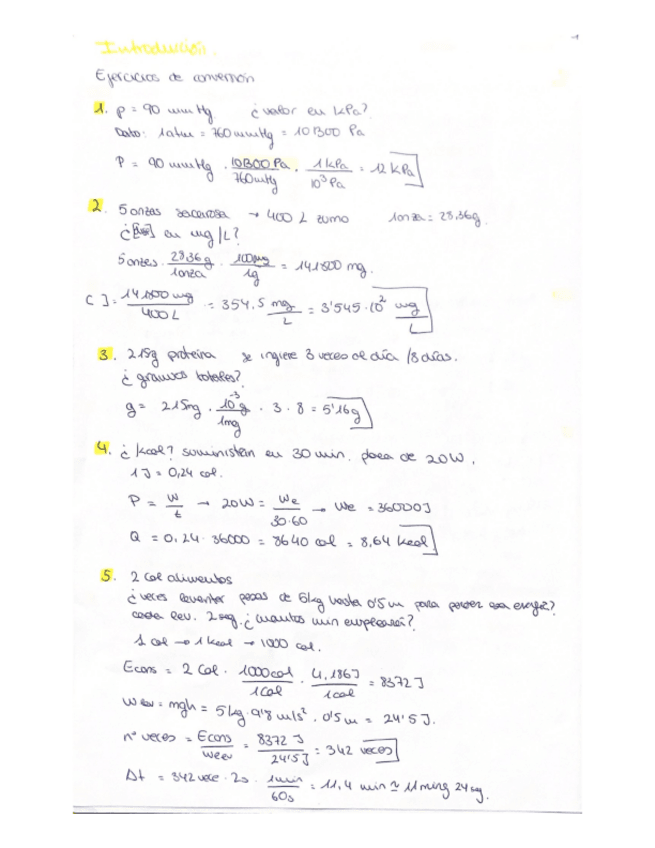 Introducción.
Ejercicios de conversión
1. p = 90 mmHg ¿valor en kPa?
Dato: 1atm = 760 mmHg = 101300 Pa
P = 90 mmHg · 101300 Pa / 760 mmHg · 1 kPa / 10³ Pa = 12 kPa
2. 5 onzas sacarosa → 400 L zumo 1 onza = 28,36g.
¿[ ] en mg/L?
5 onzas · 28,36 g / 1 onza · 1000 mg / 1g = 141800 mg.
C ] = 141800 mg / 400 L = 354,5 mg / L = 3'545·10² mg / L
3. 215g proteína se ingiere 3 veces al día /8 días.
¿gramos totales?
g = 215mg · 10⁻³ g / 1mg · 3 · 8 = 5'16g
4. ¿Kcal? suministran en 30 min. placa de 20W.
1 J = 0,24 cal.
P = W / t → 20W = We / 30·60 → We = 36000 J
Q = 0,24 · 36000 = 8640 cal = 8,64 kcal
5. 2 Cal alimentos
¿veces levantar pesas de 5kg hasta 0'5 m para perder esa energía?
cada lev. 2 seg. ¿cuántos min empleará?
1 Cal → 1 kcal → 1000 cal.
Econs = 2 Cal · 1000 cal / 1 Cal · 4,186 J / 1 cal = 8372 J
W lev = mgh = 5 kg · 9'8 m/s² · 0'5 m = 24'5 J.
nº veces = Econs / Wlev = 8372 J / 24'5 J = 342 veces
Δt = 342 vece · 2s · 1 min / 60s = 11,4 min ≃ 11 min y 24 seg.